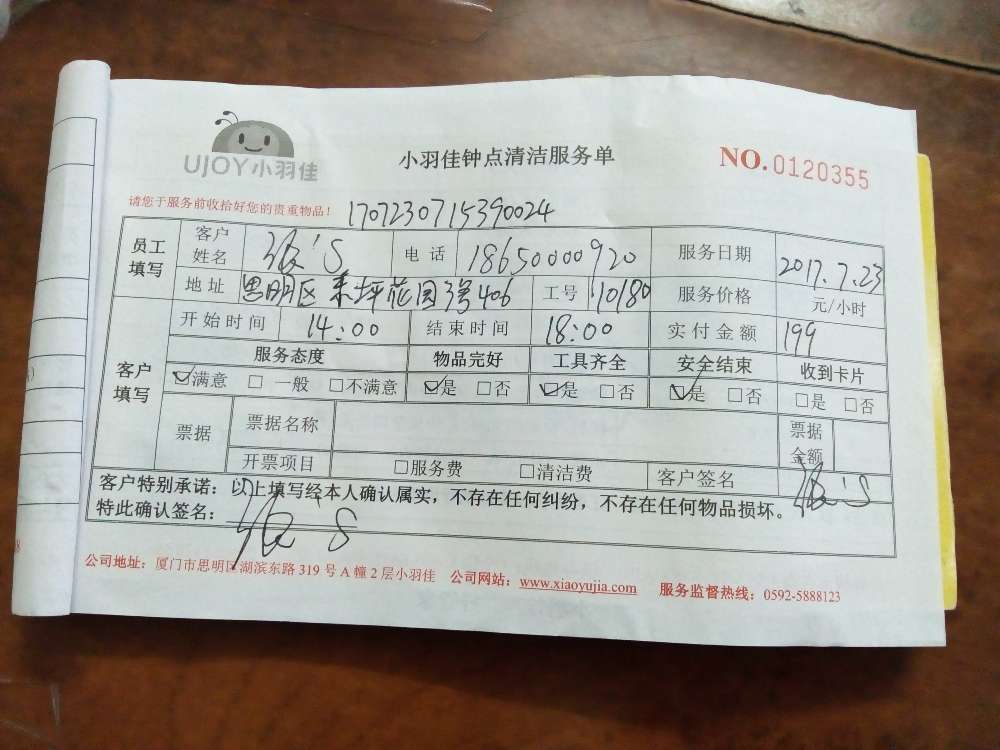 UJOY小羽佳
小羽佳钟点清洁服务单
NO.0120355
请您于服务前收拾好您的贵重物品!
1707230715390024
员工填写 客户姓名 张'S 电话 18650000920 服务日期 2017.7.23
地址 思明区 坪花园3号406 工号 10180 服务价格 元/小时
开始时间 14:00 结束时间 18:00 实付金额 199
客户填写 服务态度 物品完好 工具齐全 安全结束 收到卡片
☑满意 □一般 □不满意 ☑是 □否 ☑是 □否 ☑是 □否 □是 □否
票据 票据名称 票据金额
开票项目 □服务费 □清洁费 客户签名 张'S
客户特别承诺:以上填写经本人确认属实,不存在任何纠纷,不存在任何物品损坏。
特此确认签名: 张'S
公司地址:厦门市思明区湖滨东路 319 号 A 幢 2 层小羽佳 公司网站:www.xiaoyujia.com 服务监督热线:0592-5888123